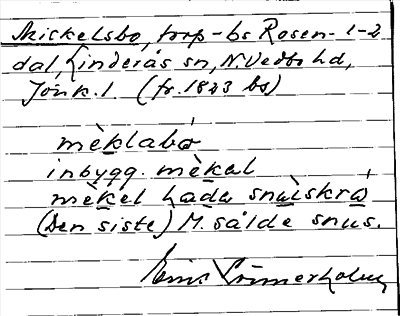 Mickelsbo, torp - bs Rosen- 1-2
dal, Linderås sn, N. Vedbo hd,
Jönk. l (fr. 1823 bs)
mèklabó
inbygg. mèkəl
mèkel hadə snùiskrá
(Den siste) M. sålde snus.